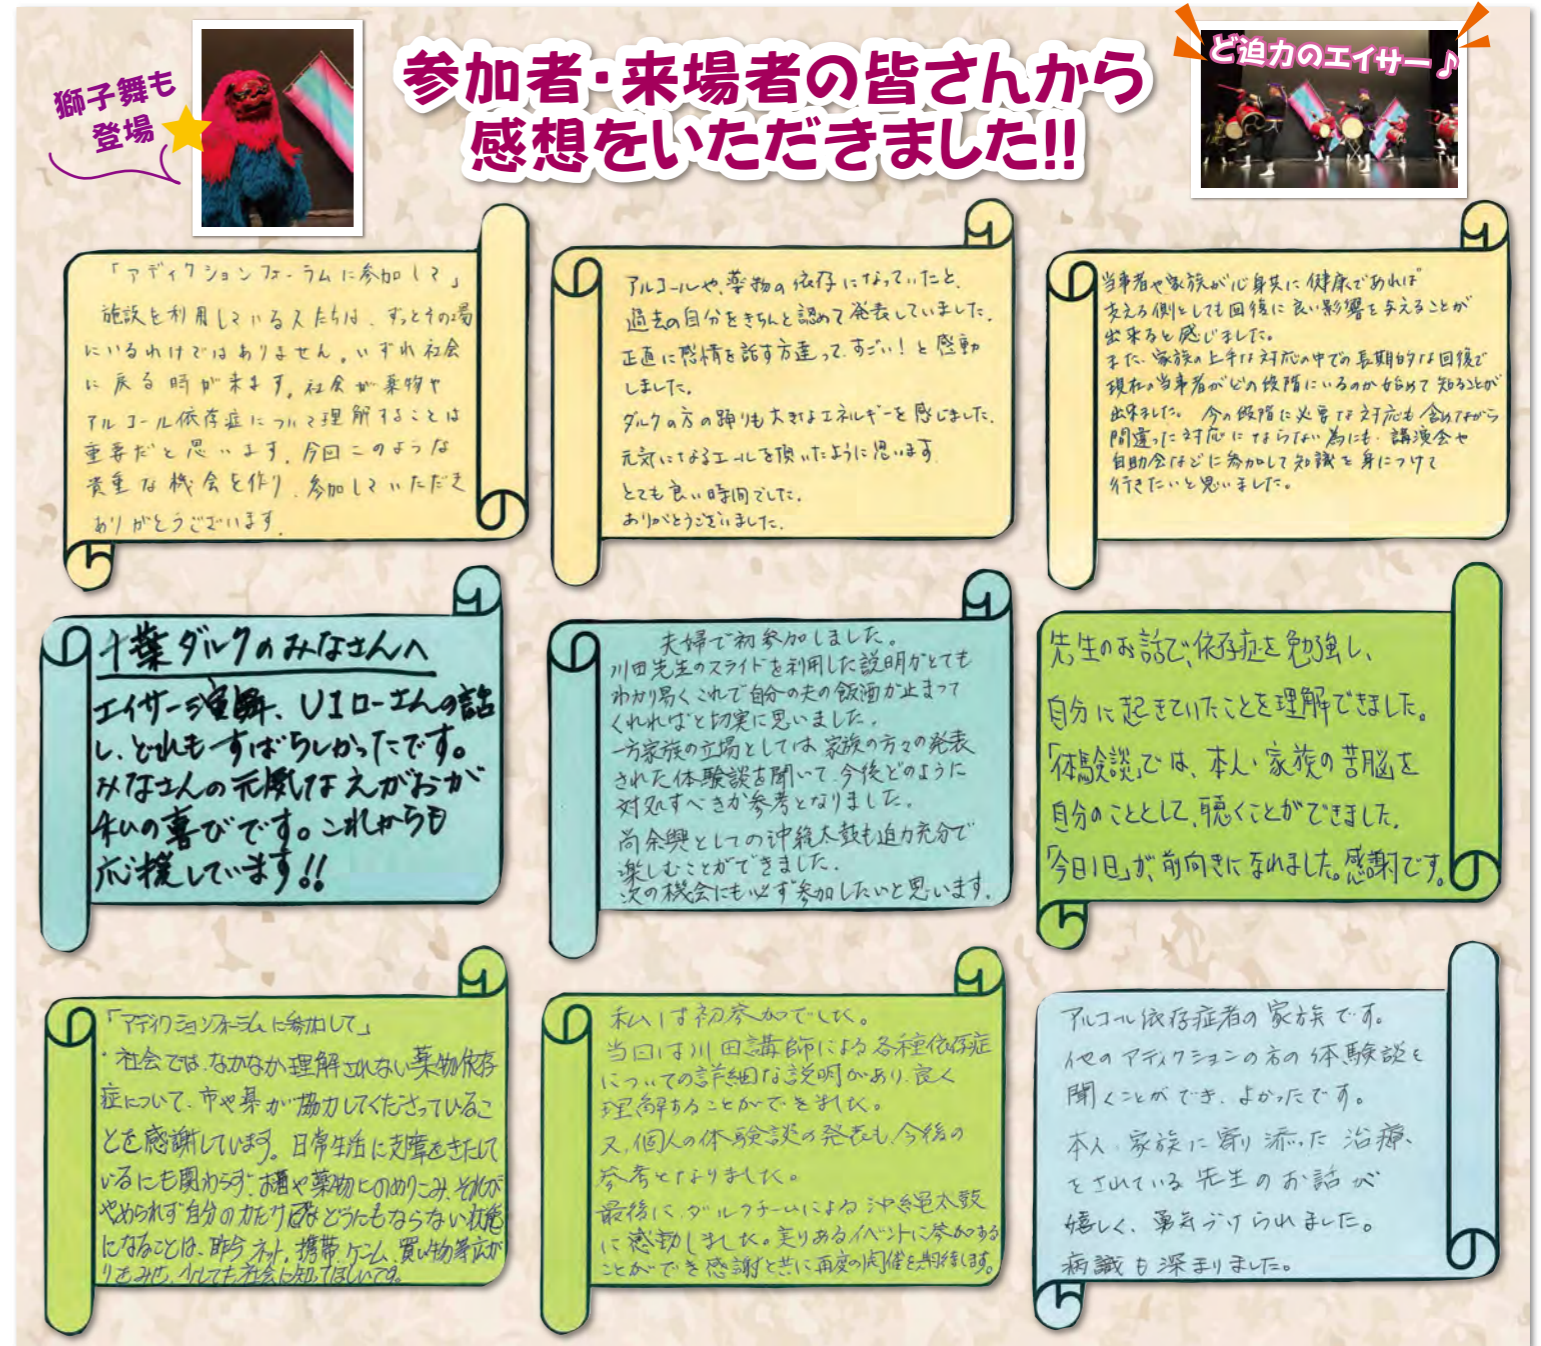 獅子舞も
登場
参加者・来場者の皆さんから
感想をいただきました!!
ど迫力のエイサー♪
「アディクションフォーラムに参加して」
施設を利用している人たちは、ずっとその場
にいるわけではありません。いずれ社会
に戻る時が来ます。社会が薬物や
アルコール依存症について理解することは
重要だと思います。今回このような
貴重な機会を作り、参加していただき
ありがとうございます。
アルコールや、薬物の依存になっていたと、
過去の自分をきちんと認めて発表していました。
正直に感情を話す方達って、すごい!と感動
しました。
ダルクの方の踊りも大きなエネルギーを感じました。
元気になるエールを頂いたように思います。
とても良い時間でした。
ありがとうございました。
当事者や家族が心身共に健康であれば
支える側としても回復に良い影響を与えることが
出来ると感じました。
また、家族の上手な対応の中での長期的な回復で
現在の当事者がどの段階にいるのか始めて知ることが
出来ました。今の段階に必要な対応も含めながら
間違った対応にならない為にも、講演会や
自助会などに参加して知識を身につけて
行きたいと思いました。
千葉ダルクのみなさんへ
エイサーの演舞、UIローさんの話
し、どれもすばらしかったです。
みなさんの元気なえがおが
私の喜びです。これからも
応援しています!!
夫婦で初参加しました。
川田先生のスライドを利用した説明がとても
わかり易くこれで自分の夫の飲酒が止まって
くれればと切実に思いました。
一方家族の立場としては、家族の方々の発表
された体験談を聞いて、今後どのように
対処すべきか参考となりました。
尚余興としての沖縄太鼓も迫力充分で
楽しむことができました。
次の機会にも必ず参加したいと思います。
先生のお話で、依存症を勉強し、
自分に起きていたことを理解できました。
「体験談」では、本人・家族の苦脳を
自分のこととして、聴くことができました。
「今日1日」が、前向きになれました。感謝です。
「アディクションフォーラムに参加して」
・社会では、なかなか理解されない薬物依存
症について、市や県が協力してくださっているこ
とを感謝しています。日常生活に支障をきたして
いるにも関わらず、お酒や薬物にのめりこみ、それが
やめられず自分の力だけではどうにもならない状態
になることは、昨今ネット、携帯、ゲーム、買い物等広が
りをみせ、少しでも社会に知ってほしいです。
私は初参加でした。
当日は川田講師による各種依存症
についての詳細な説明があり、良く
理解することができました。
又、個人の体験談の発表も、今後の
参考となりました。
最後に、ダルクチームによる沖縄太鼓
に感動しました。実りあるイベントに参加する
ことができ感謝と共に再度の開催を期待します。
アルコール依存症者の家族です。
他のアディクションの方の体験談を
聞くことができ、よかったです。
本人、家族に寄り添った治療、
をされている先生のお話が
嬉しく、勇気づけられました。
病識も深まりました。